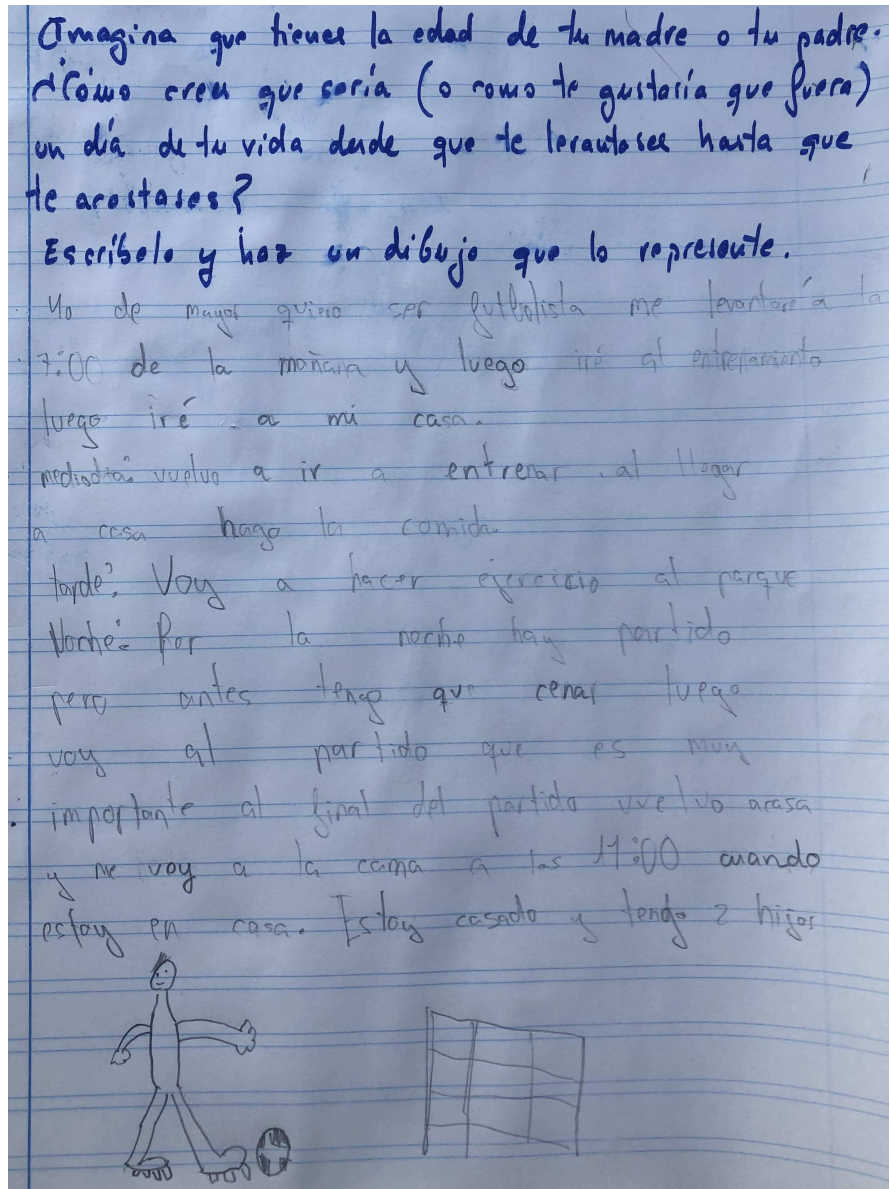 Imagina que tienes la edad de tu madre o tu padre.
¿Cómo crees que sería (o como te gustaría que fuera)
un día de tu vida desde que te levantases hasta que
te acostases?
Escríbelo y haz un dibujo que lo represente.
Yo de mayor quiero ser futbolista me levantaré a la
7:00 de la mañana y luego iré al entrenamiento
luego iré a mi casa.
mediodía: vuelvo a ir a entrenar al llegar
a casa hago la comida.
tarde: Voy a hacer ejercicio al parque
Noche: Por la noche hay partido
pero antes tengo que cenar luego
voy al partido que es muy
importante al final del partido vuelvo acasa
y me voy a la cama a las 11:00 cuando
estoy en casa. Estoy casado y tendo 2 hijos